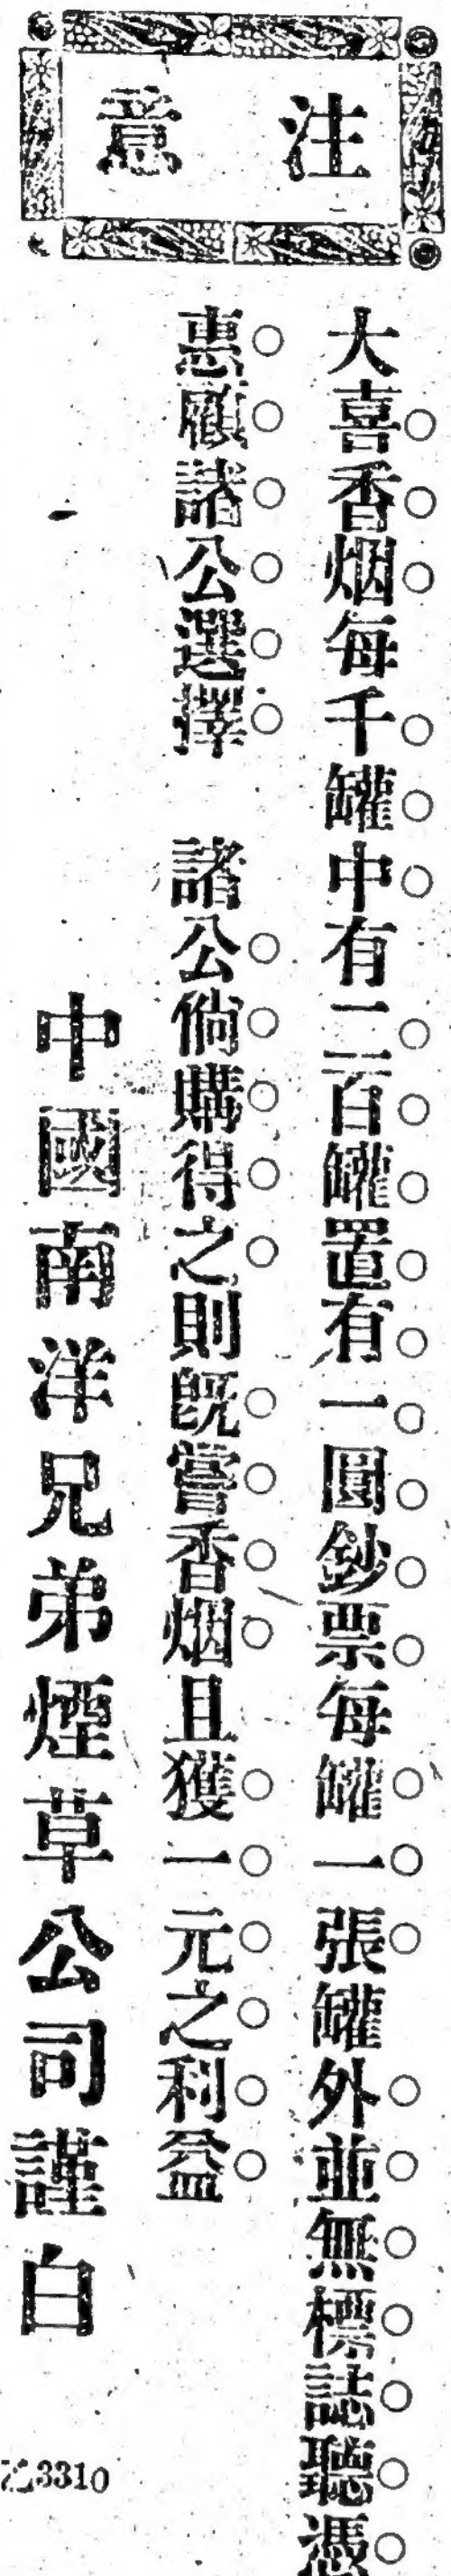 注意
大喜香烟每千罐中有二百罐置有一圓鈔票每罐一張罐外並無標誌聽憑
惠顧諸公選擇　諸公倘購得之則既嘗香烟且獲一元之利益
中國南洋兄弟煙草公司謹白
乙3310